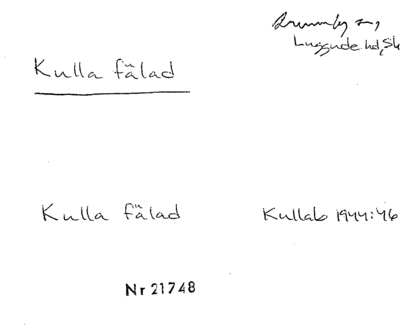 Brunnby sn,
Luggude hd, Sk
Kulla fälad
Kulla fälad
Kullab 1944:46
Nr 21748